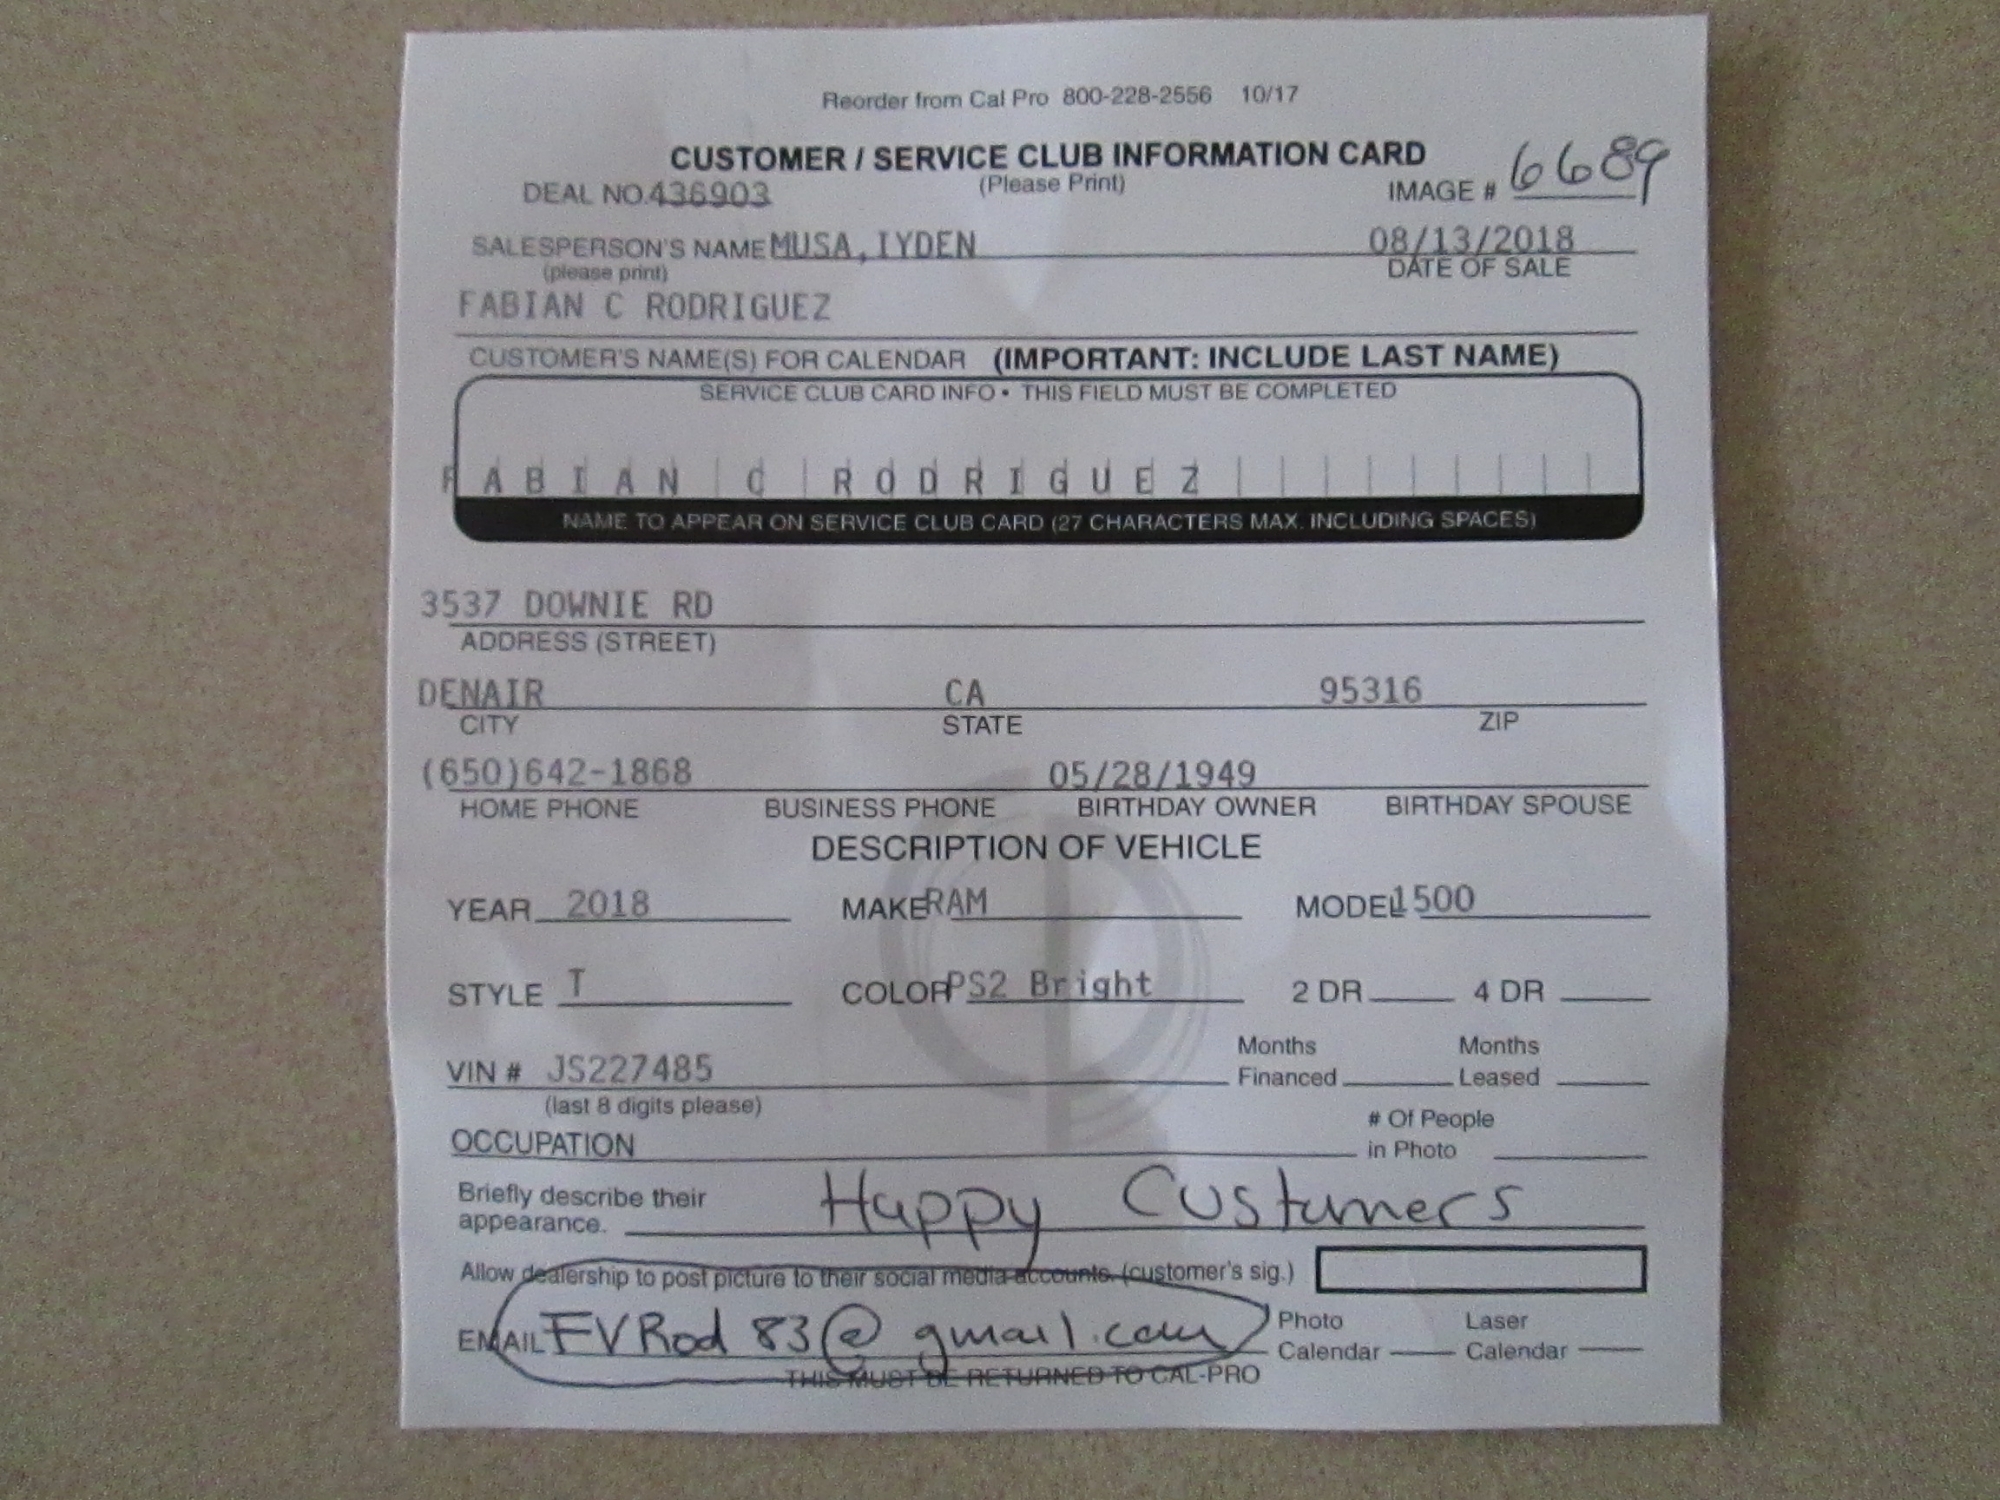 Reorder from Cal Pro 800-228-2556 10/17
CUSTOMER / SERVICE CLUB INFORMATION CARD
(Please Print)
DEAL NO. 436903 IMAGE # 6689
SALESPERSON'S NAME MUSA, IYDEN 08/13/2018
(please print) DATE OF SALE
FABIAN C RODRIGUEZ
CUSTOMER'S NAME(S) FOR CALENDAR (IMPORTANT: INCLUDE LAST NAME)
SERVICE CLUB CARD INFO • THIS FIELD MUST BE COMPLETED
FABIAN C RODRIGUEZ
NAME TO APPEAR ON SERVICE CLUB CARD (27 CHARACTERS MAX. INCLUDING SPACES)
3537 DOWNIE RD
ADDRESS (STREET)
DENAIR CA 95316
CITY STATE ZIP
(650)642-1868 05/28/1949
HOME PHONE BUSINESS PHONE BIRTHDAY OWNER BIRTHDAY SPOUSE
DESCRIPTION OF VEHICLE
YEAR 2018 MAKE RAM MODEL 1500
STYLE T COLOR PS2 Bright 2 DR 4 DR
Months Months
VIN # JS227485 Financed Leased
(last 8 digits please)
# Of People
OCCUPATION in Photo
Briefly describe their
appearance. Happy Customers
Allow dealership to post picture to their social media accounts. (customer's sig.)
EMAIL FVRod83@gmail.com Photo Calendar Laser Calendar
THIS MUST BE RETURNED TO CAL-PRO